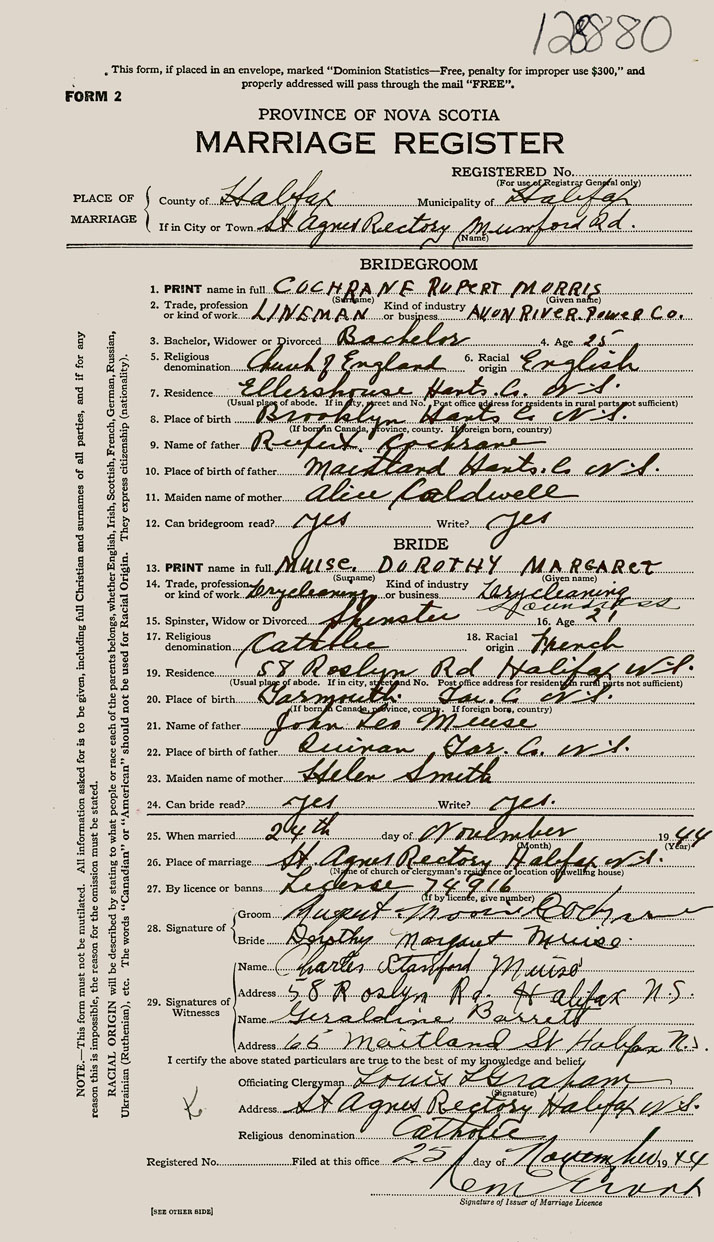 12880
. This form, if placed in an envelope, marked "Dominion Statistics—Free, penalty for improper use $300," and
properly addressed will pass through the mail "FREE".
FORM 2
PROVINCE OF NOVA SCOTIA
MARRIAGE REGISTER
REGISTERED No.
(For use of Registrar General only)
PLACE OF MARRIAGE
County of Halifax Municipality of Halifax
If in City or Town St Agnes Rectory Mumford Rd.
(Name)
BRIDEGROOM
1. PRINT name in full COCHRANE RUPERT MORRIS
(Surname) (Given name)
2. Trade, profession or kind of work LINEMAN Kind of industry or business AVON RIVER. POWER CO.
3. Bachelor, Widower or Divorced Bachelor 4. Age 25
5. Religious denomination Church of England 6. Racial origin English
7. Residence Ellershouse Hants. Co. N.S.
(Usual place of abode. If in city, street and No. Post office address for residents in rural parts not sufficient)
8. Place of birth Brooklyn Hants Co N.S.
(If born in Canada, province, county. If foreign born, country)
9. Name of father Rupert Cochrane
10. Place of birth of father Maitland Hants. Co N.S.
11. Maiden name of mother Alice Caldwell
12. Can bridegroom read? yes Write? yes
BRIDE
13. PRINT name in full MUISE. DOROTHY MARGARET
(Surname) (Given name)
14. Trade, profession or kind of work Drycleaning Kind of industry or business Drycleaning
Laundress
15. Spinster, Widow or Divorced Spinster 16. Age 21
17. Religious denomination Catholic 18. Racial origin French
19. Residence 58 Roslyn Rd Halifax N.S.
(Usual place of abode. If in city, street and No. Post office address for residents in rural parts not sufficient)
20. Place of birth Yarmouth Yar. Co N.S.
(If born in Canada, province, county. If foreign born, country)
21. Name of father John Leo Muise
22. Place of birth of father Quinan Yar. Co. N.S.
23. Maiden name of mother Helen Smith
24. Can bride read? yes Write? yes.
25. When married 24th day of November 1944
(Month) (Year)
26. Place of marriage St. Agnes Rectory Halifax N.S.
(Name of church or clergyman's residence or location of dwelling house)
27. By licence or banns License 74916
(If by licence, give number)
28. Signature of
Groom Cochrane
Bride Dorothy Margaret Muise.
29. Signatures of Witnesses
Name Charles Stanford Muise
Address 58 Roslyn Rd. Halifax N.S.
Name Geraldine Barrett
Address 66 Maitland St Halifax N.S.
I certify the above stated particulars are true to the best of my knowledge and belief
Officiating Clergyman Louis L Graham
(Signature)
Address St Agnes Rectory Halifax N.S.
Religious denomination Catholic
Registered No. Filed at this office 25 day of November 1944
Signature of Issuer of Marriage Licence
[SEE OTHER SIDE]
NOTE.—This form must not be mutilated. All information asked for is to be given, including full Christian and surnames of all parties, and if for any
reason this is impossible, the reason for the omission must be stated.
RACIAL ORIGIN will be described by stating to what people or race each of the parents belongs, whether English, Irish, Scottish, French, German, Russian,
Ukrainian (Ruthenian), etc. The words "Canadian" or "American" should not be used for Racial Origin. They express citizenship (nationality).